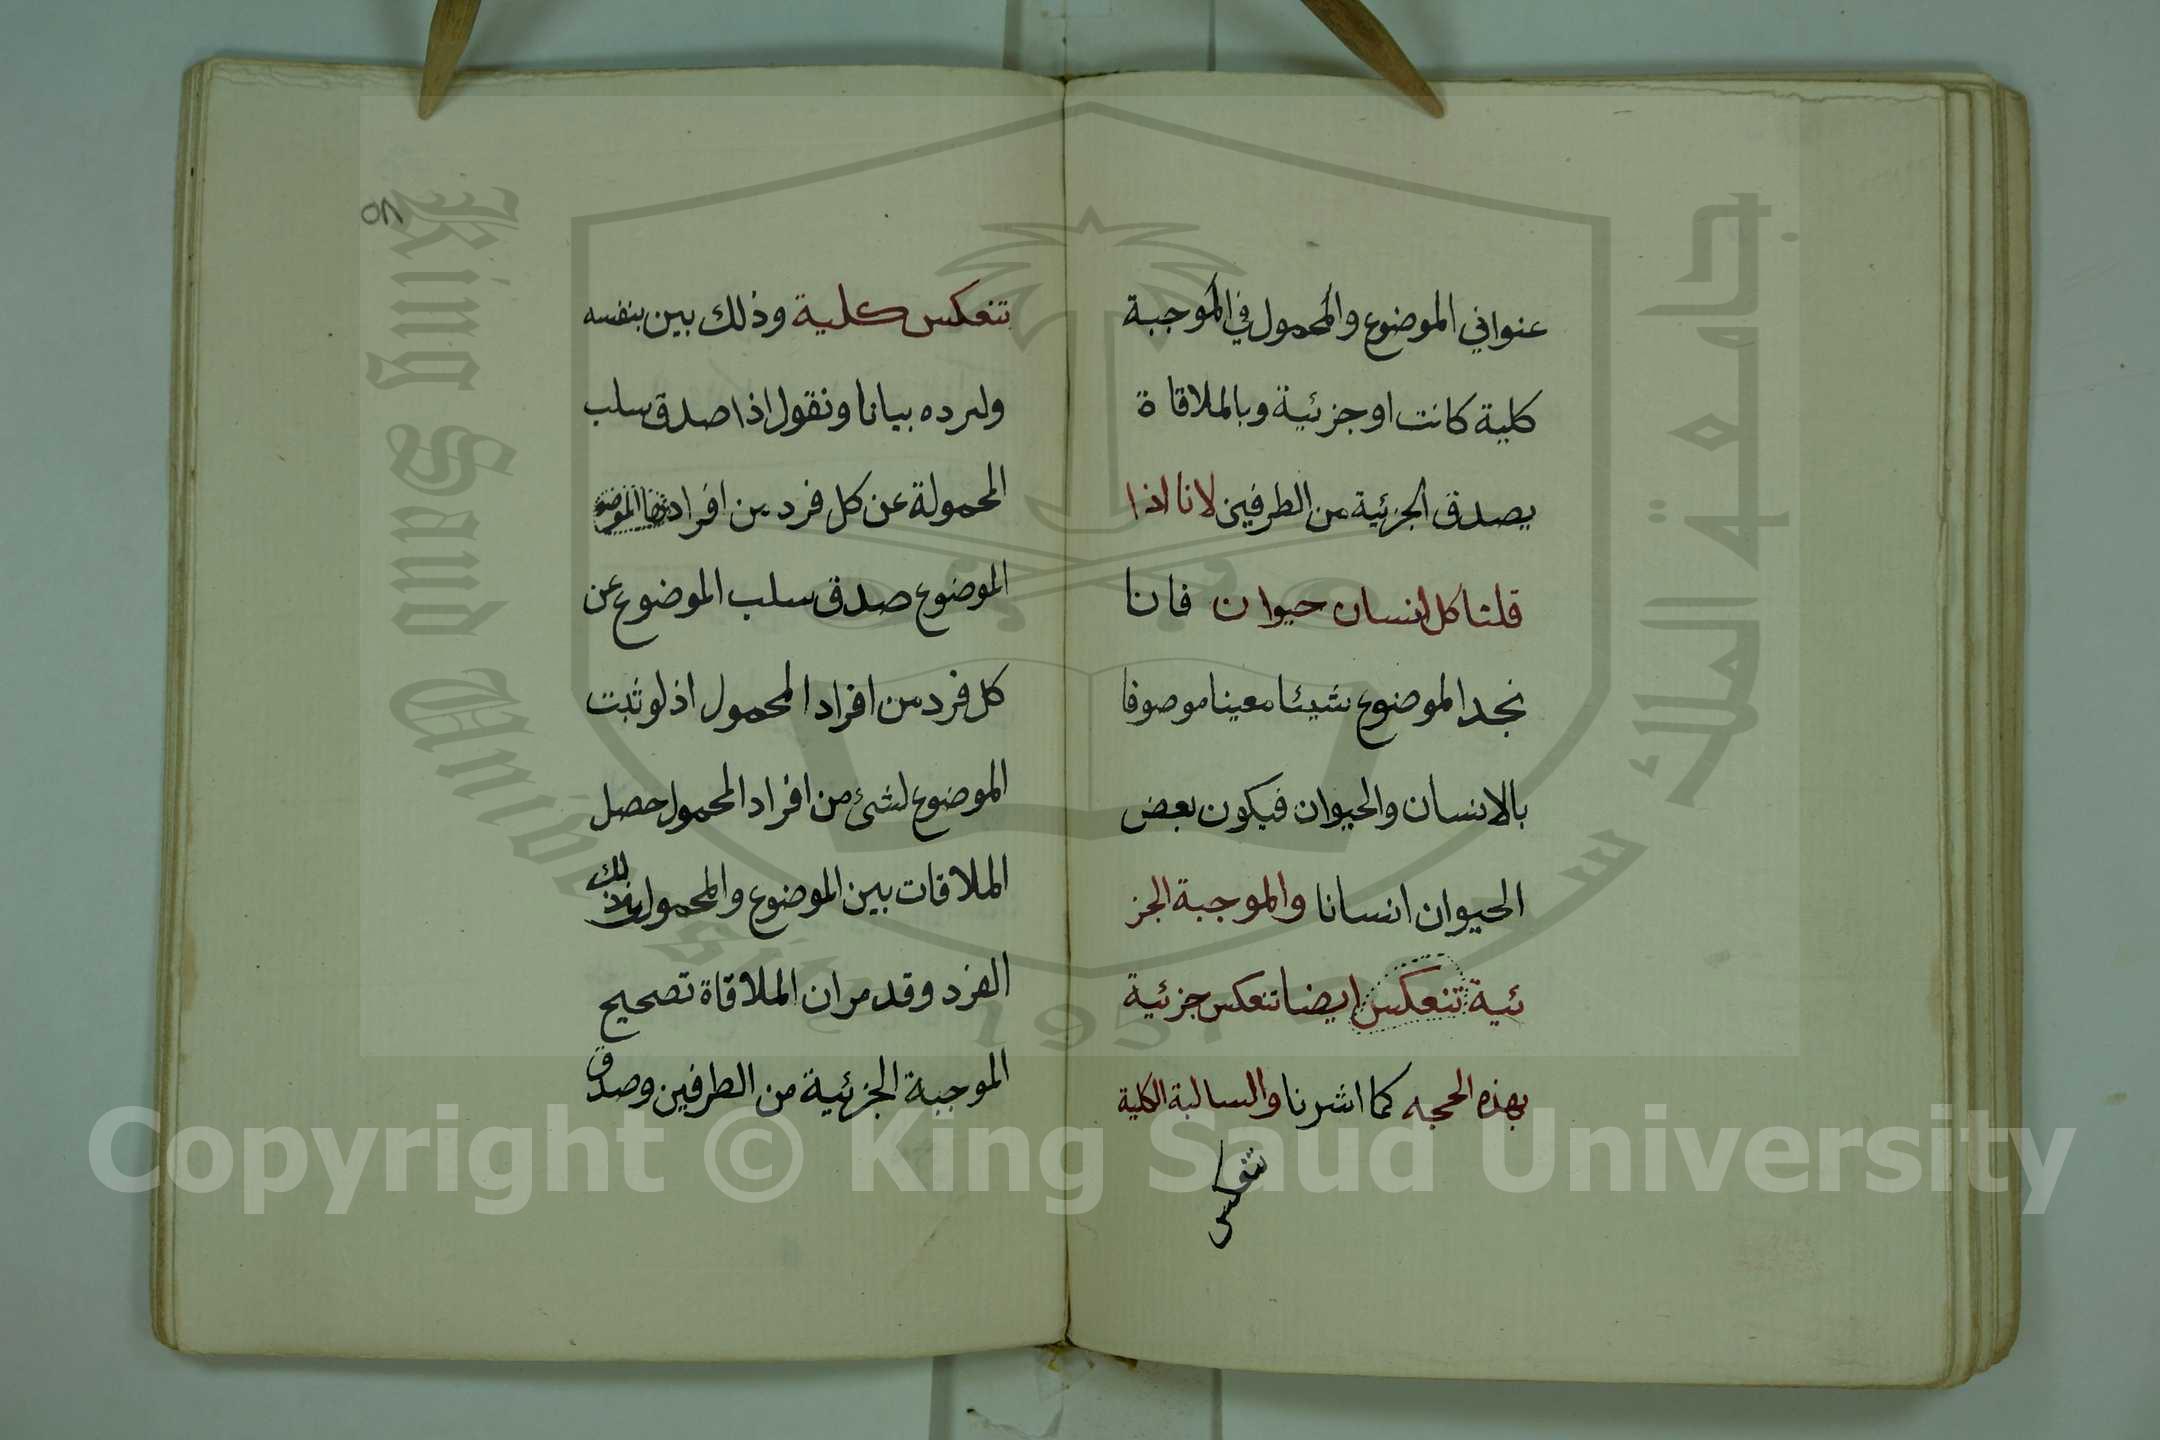 عنواني الموضوع والمحمول في الموجبة
كلية كانت او جزئية وبالملاقاة
يصدق الجزئية من الطرفين لانا اذا
قلنا كل انسان حيوان فانا
نجد الموضوع شيئا معينا موصوفا
بالانسان والحيوان فيكون بعض
الحيوان انسانا والموجبة الجز
ئية تنعكس ايضا تنعكس جزئية
بهذه الحجه كما اشرنا والسالبة الكلية
تنعكس
٥٨
تنعكس كلية وذلك بين بنفسه
ولنرده بيانا ونقول اذا صدق سلب
المحمولة عن كل فرد من افراد
الموضوع صدق سلب الموضوع عن
كل فرد من افراد المحمول اذ لو ثبت
الموضوع لشئ من افراد المحمول حصل
الملاقات بين الموضوع والمحمول بذلك
الفرد وقد مر ان الملاقاة تصحيح
الموجبة الجزئية من الطرفين وصدق
King Saud University
جامعة الملك سعود
1957
Copyright © King Saud University